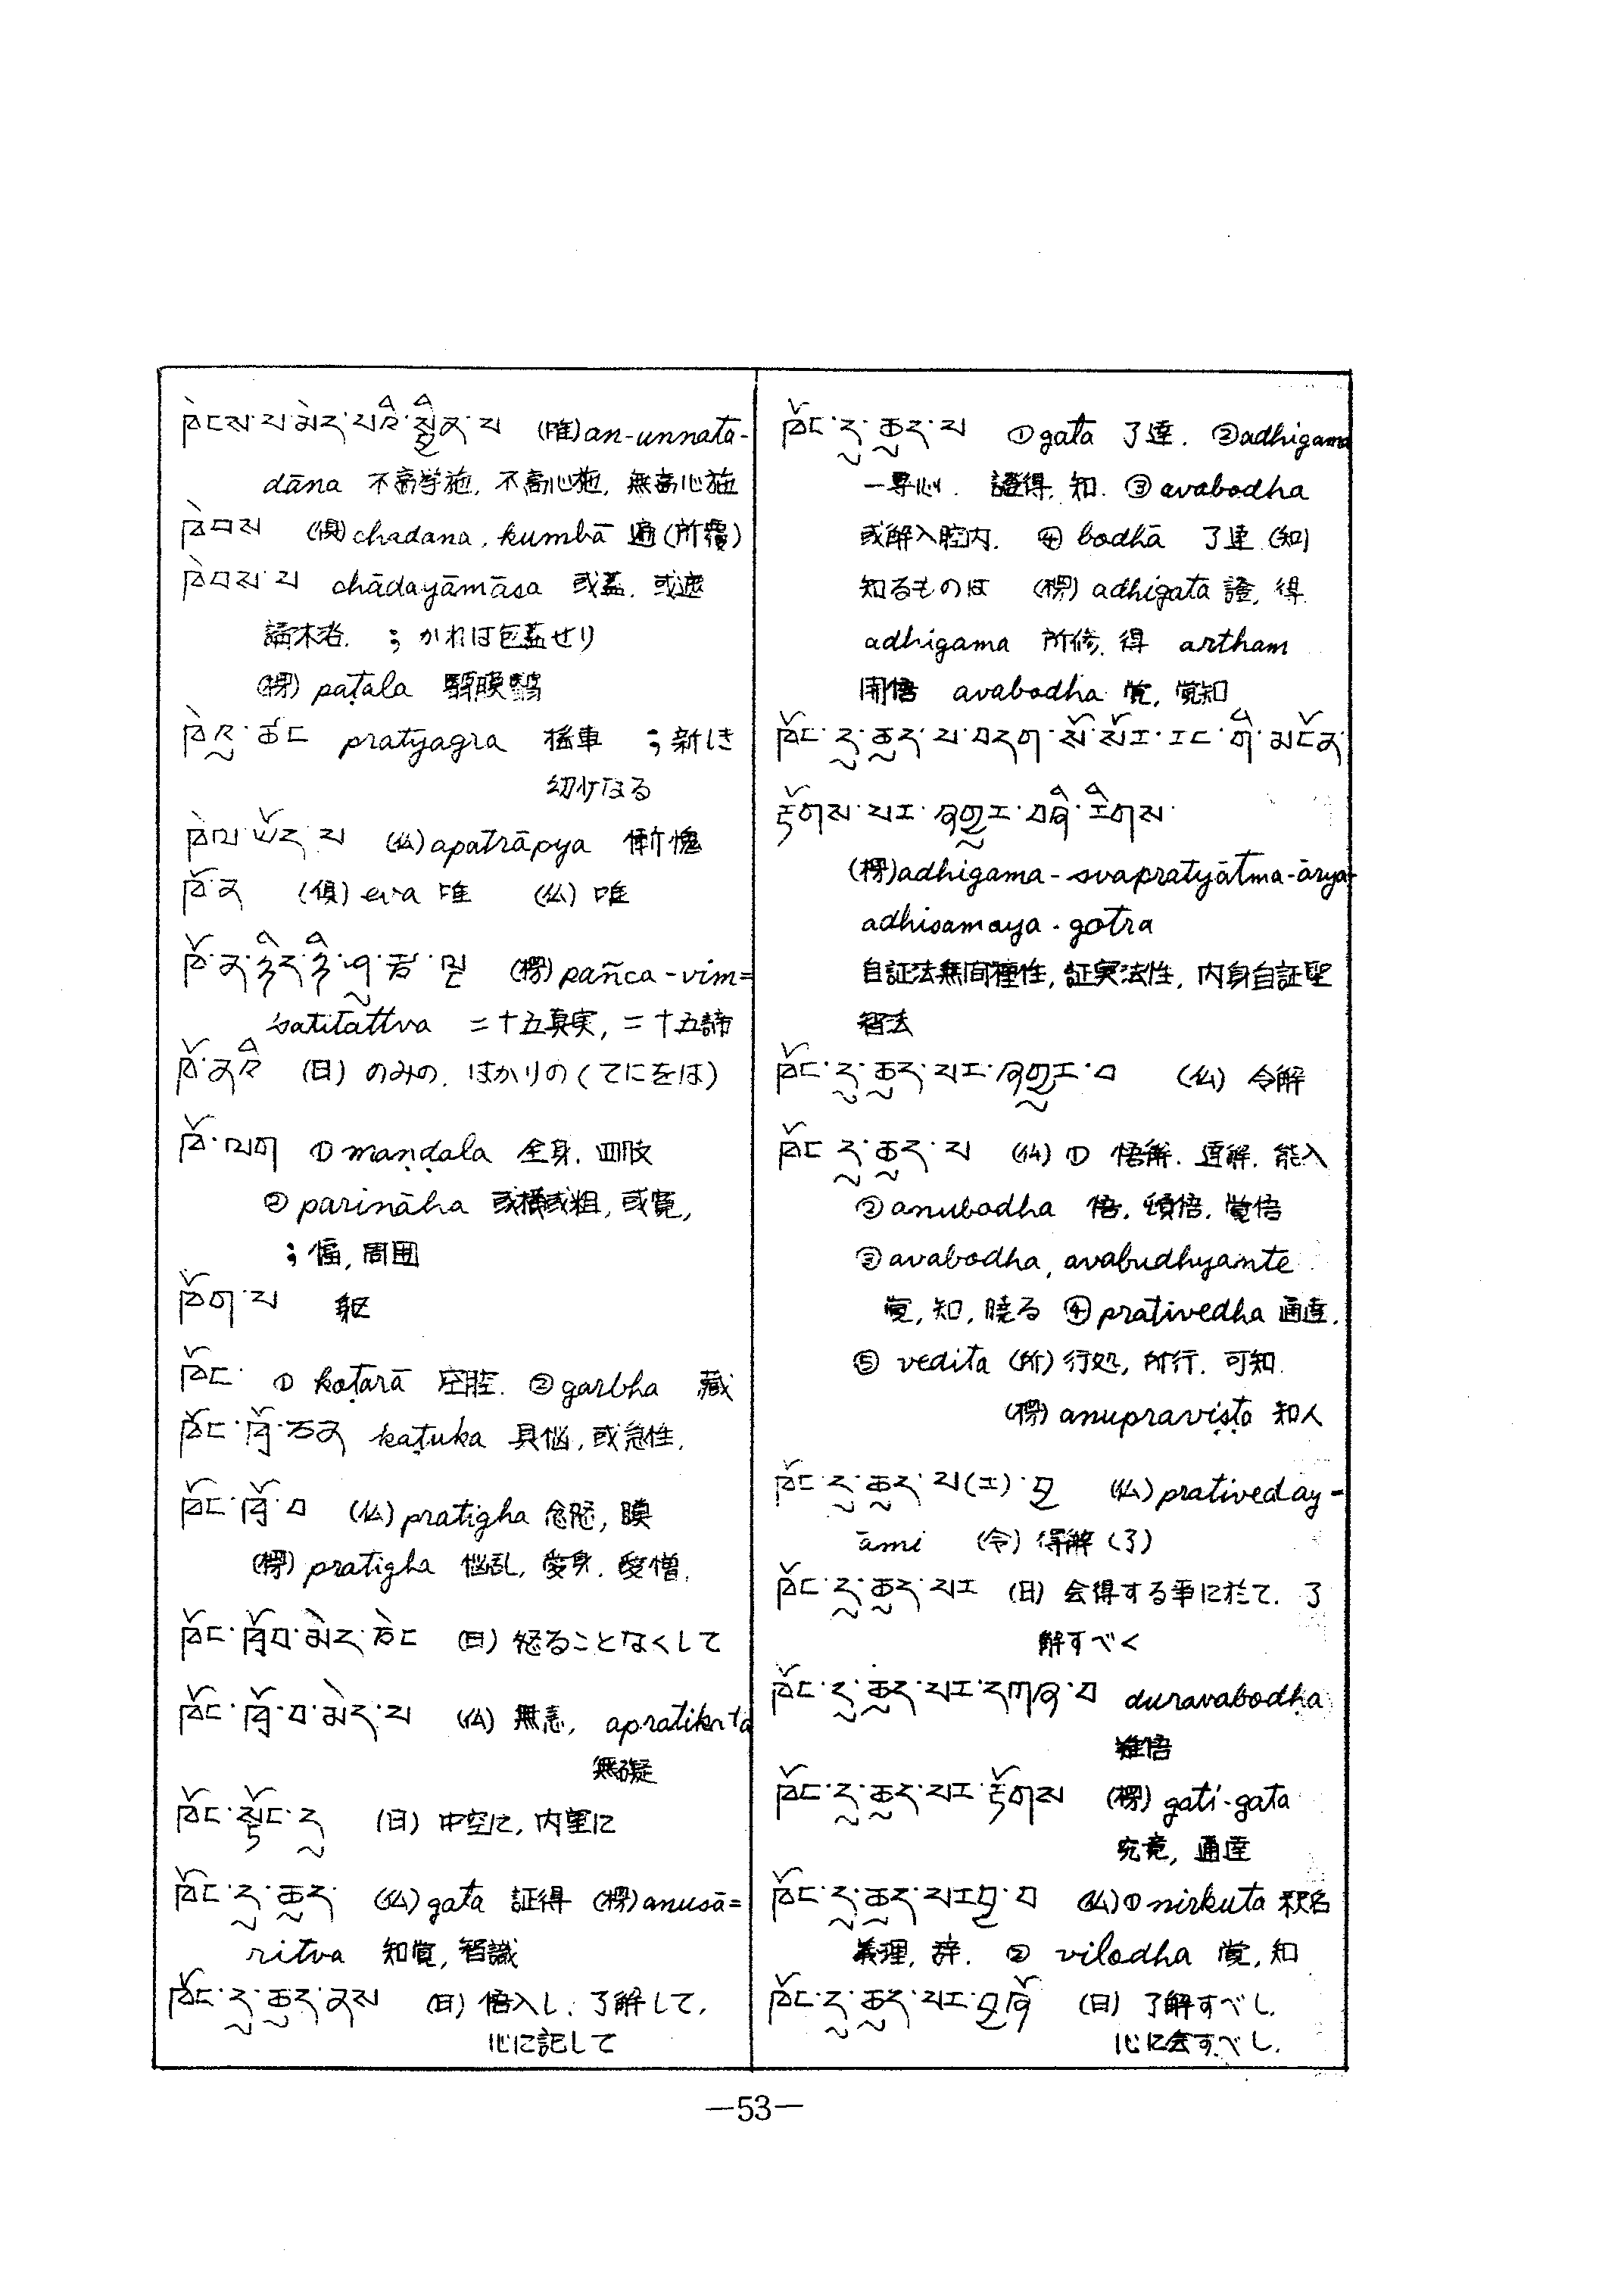 ཁེངས་པ་མེད་པའི་སྦྱིན་པ (唯) an-unnata-
dāna 不高挙施, 不高心施, 無高心施
ཁེབས (倶) chadana, kumbā 遍(所覆)
ཁེབས་པ chādayāmāsa 或蓋, 或遮
; かれは包蓋せり
(楞) paṭala 翳膜翳
ཁེའུ་ཚང pratyagra ; 新しき
幼けなる
ཁེལ་ཡོད་པ (仏) apatrāpya 慚愧
ཁོ་ན (倶) eva 唯 (仏) 唯
ཁོ་ན་ཉིད་ཉི་ཤུ་རྩ་ལྔ (楞) pañca-vim=
śatitattva 二十五真実, 二十五諦
ཁོ་ནའི (日) のみの, ばかりの (てにをは)
ཁོ་ལག ① maṇḍala 全身, 四肢
② parināha 或横或粗, 或寛,
; 幅, 周囲
ཁོག་པ 躯
ཁོང་ ① koṭarā 空腔. ② garbha 蔵
ཁོང་ཁྲོ་ཅན kaṭuka 具悩, 或急性,
ཁོང་ཁྲོ་བ (仏) pratigha 忿怒, 瞋
(楞) pratigha 悩乱, 愛身, 愛憎,
ཁོང་ཁྲོབ་མེད་ཅིང (日) 怒ることなくして
ཁོང་ཁྲོ་བ་མེད་པ (仏) 無恚, apratikṛta
無礙
ཁོང་སྟོང་དུ (日) 中空に, 内里に
ཁོང་དུ་ཆུད (仏) gata 証得 (楞) anusā=
ritva 知覚, 智識
ཁོང་དུ་ཆུད་ནས (日) 悟入し, 了解して,
心に記して
ཁོང་དུ་ཆུད་པ ① gata 了達. ② adhigama
證得, 知. ③ avabodha
或解入腔内. ④ bodhā 了達 (知)
知るものは (楞) adhigata 證, 得
adhigama 所修, 得 artham
開悟 avabodha 覚, 覚知
ཁོང་དུ་ཆུད་པ་བདག་སོ་སོར་རང་གི་མངོན་
རྟོགས་པར་འགྱུར་བའི་རིགས་
(楞) adhigama-svapratyātma-ārya-
adhisamaya-gotra
自証法無間種性, 証実法性, 内身自証聖
智法
ཁོང་དུ་ཆུད་པར་འགྱུར་བ (仏) 令解
ཁོང་དུ་ཆུད་པ (仏) ① 悟解, 達解, 能入
② anubodha 悟, 頓悟, 覚悟
③ avabodha, avabudhyante
覚, 知, 暁る ④ prativedha 通達,
⑤ vedita (所) 行処, 所行, 可知
(楞) anupraviṣṭa 知人
ཁོང་དུ་ཆུད་པ(ར)་བྱ (仏) prativeday-
āmi (令) 得解 (了)
ཁོང་དུ་ཆུད་པར (日) 会得する事に於て, 了
解すべく
ཁོང་དུ་ཆུད་པར་དཀའ་བ duravabodha
難悟
ཁོང་དུ་ཆུད་པར་རྟོགས (楞) gati-gata
究竟, 通達
ཁོང་དུ་ཆུད་པར་བྱ་བ (仏) ① nirkuta 釈名
義理, 辞. ② vilodha 覚, 知
ཁོང་དུ་ཆུད་པར་བྱའོ (日) 了解すべし,
心に会すべし.
—53—